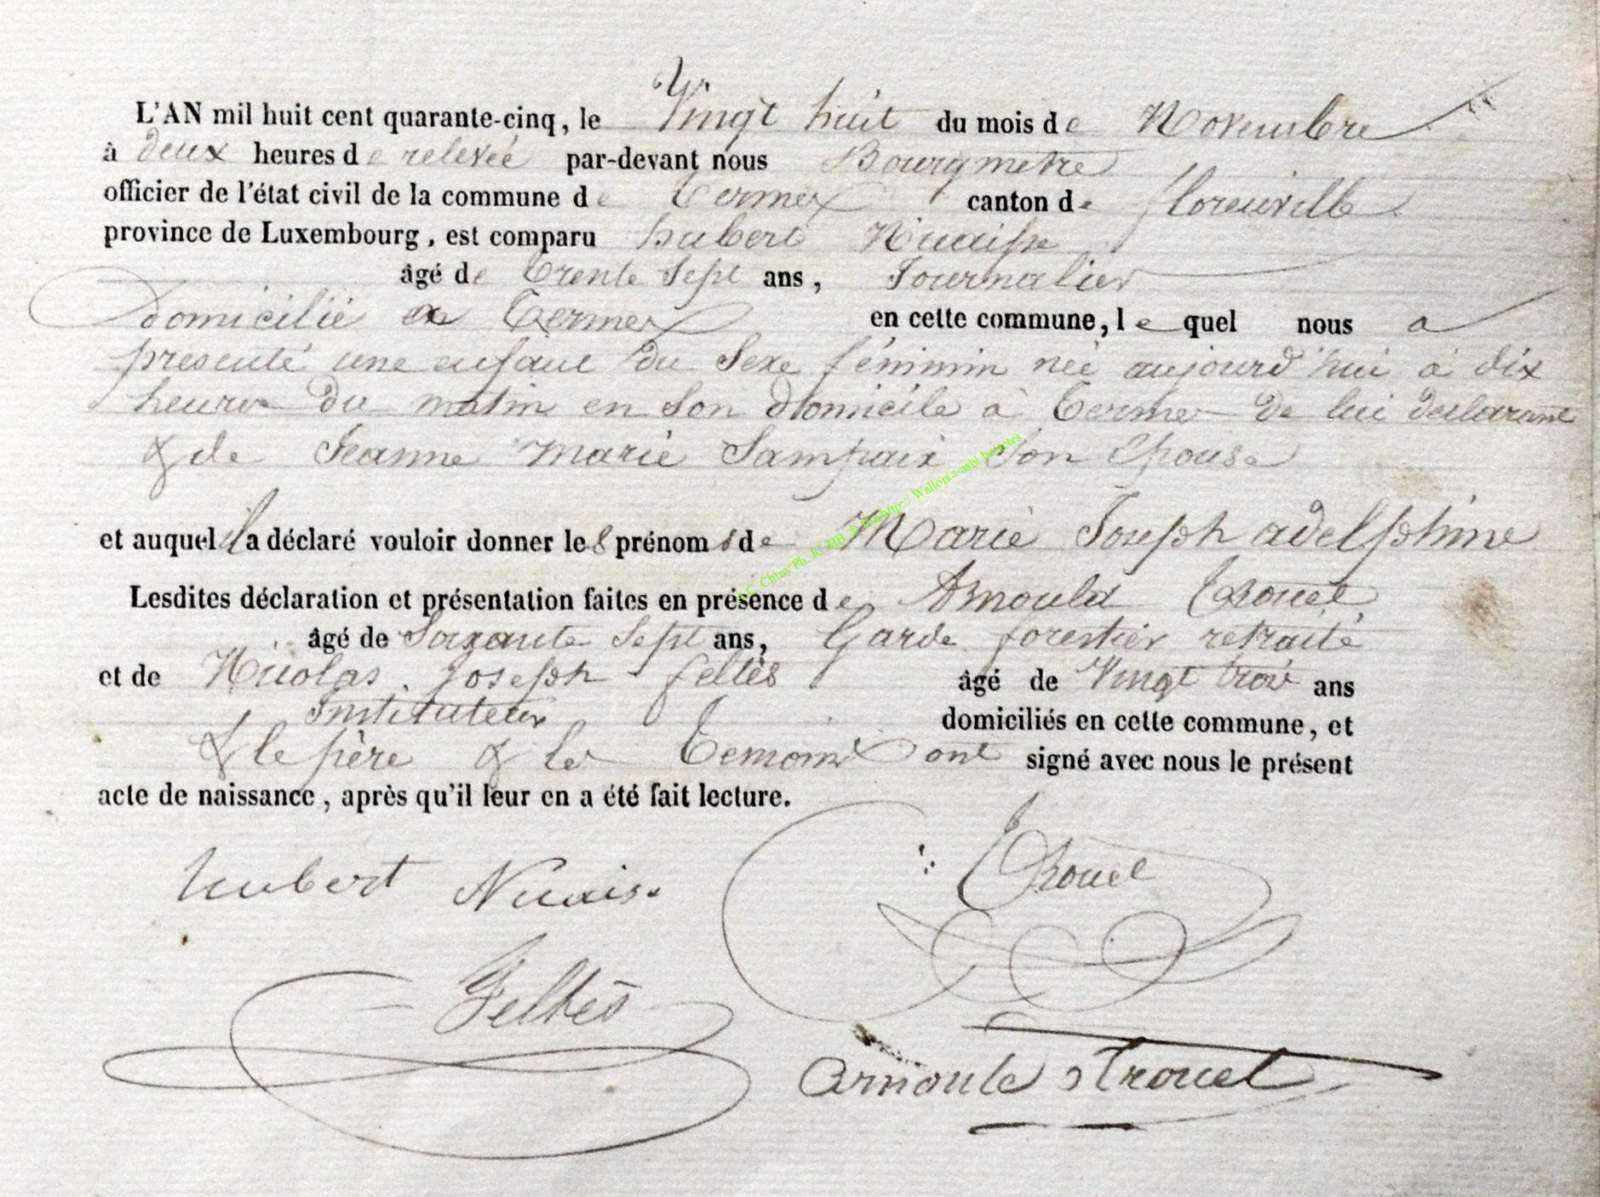 L'AN mil huit cent quarante-cinq, le Vingt huit du mois de Novembre
à deux heures de relevée par-devant nous Bourgmetre
officier de l'état civil de la commune de Termes canton de florenville
province de Luxembourg, est comparu hubert Nicaise
âgé de trente sept ans, Journalier
domicilié a Termes en cette commune, le quel nous a
presenté une enfant du Sexe féminin neé aujourd'hui à dix
heures du matin en son domicile à Termes de lui declarant
& de Jeanne Marie Sampaix Son Epouse
et auquel il a déclaré vouloir donner les prénoms de Marie Joseph adelphine
Lesdites déclaration et présentation faites en présence de Arnould Trouet
âgé de Soixante Sept ans, Garde forestier retraité
et de Nicolas Joseph feltès âgé de Vingt trois ans
Instituteur domiciliés en cette commune, et
& le père & les Temoins ont signé avec nous le présent
acte de naissance, après qu'il leur en a été fait lecture.
hubert Nicaise
Trouet
Feltès
Arnould Trouet